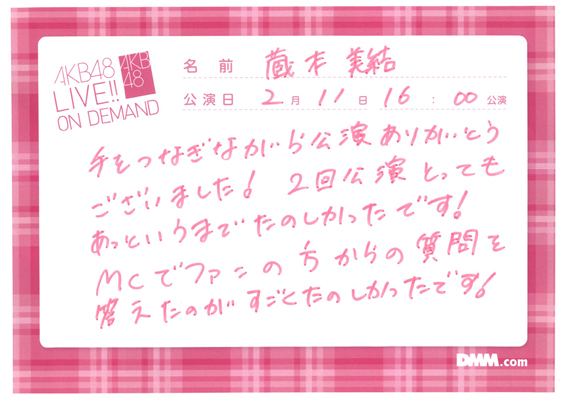 AKB48
LIVE!!
ON DEMAND
AKB
48
名前 蔵本美結
公演日 2月11日16:00公演
手をつなぎながら公演ありがとう
ございました! 2回公演とっても
あっというまでたのしかったです!
MCでファンの方からの質問を
答えたのがすごくたのしかったです!
DMM.com